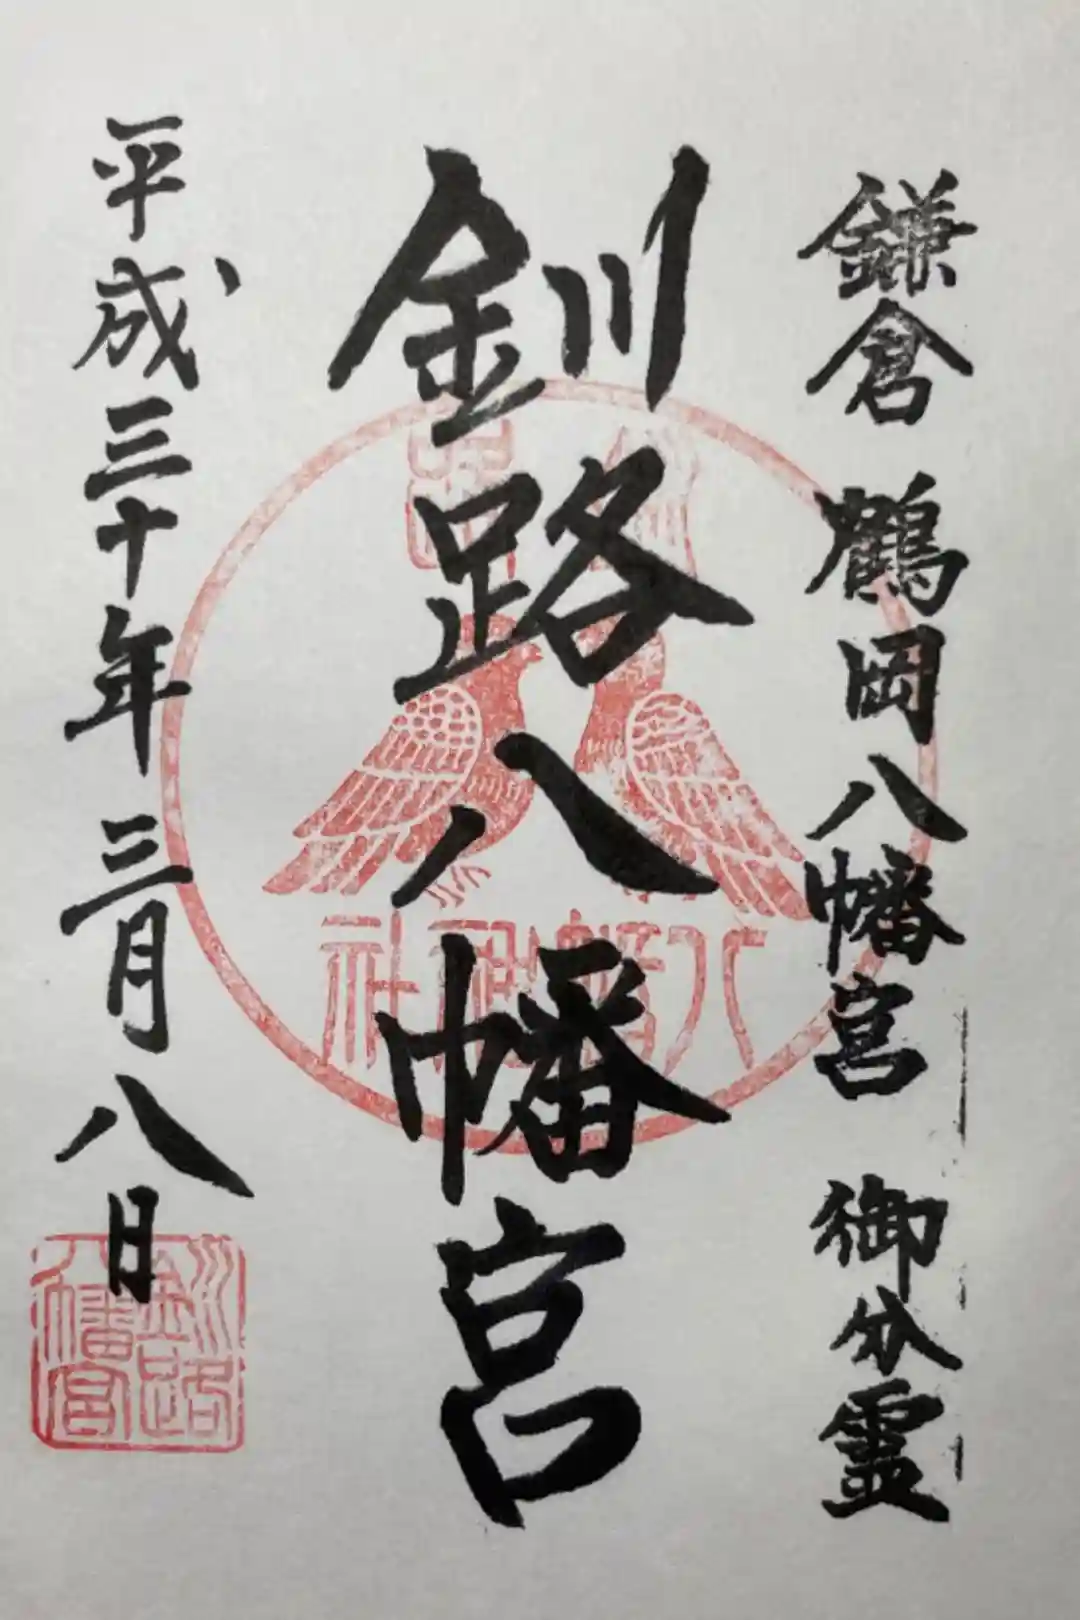 鎌倉 鶴岡八幡宮 御分霊
釧路八幡宮
平成三十年三月八日
八幡神社
釧路
八幡宮